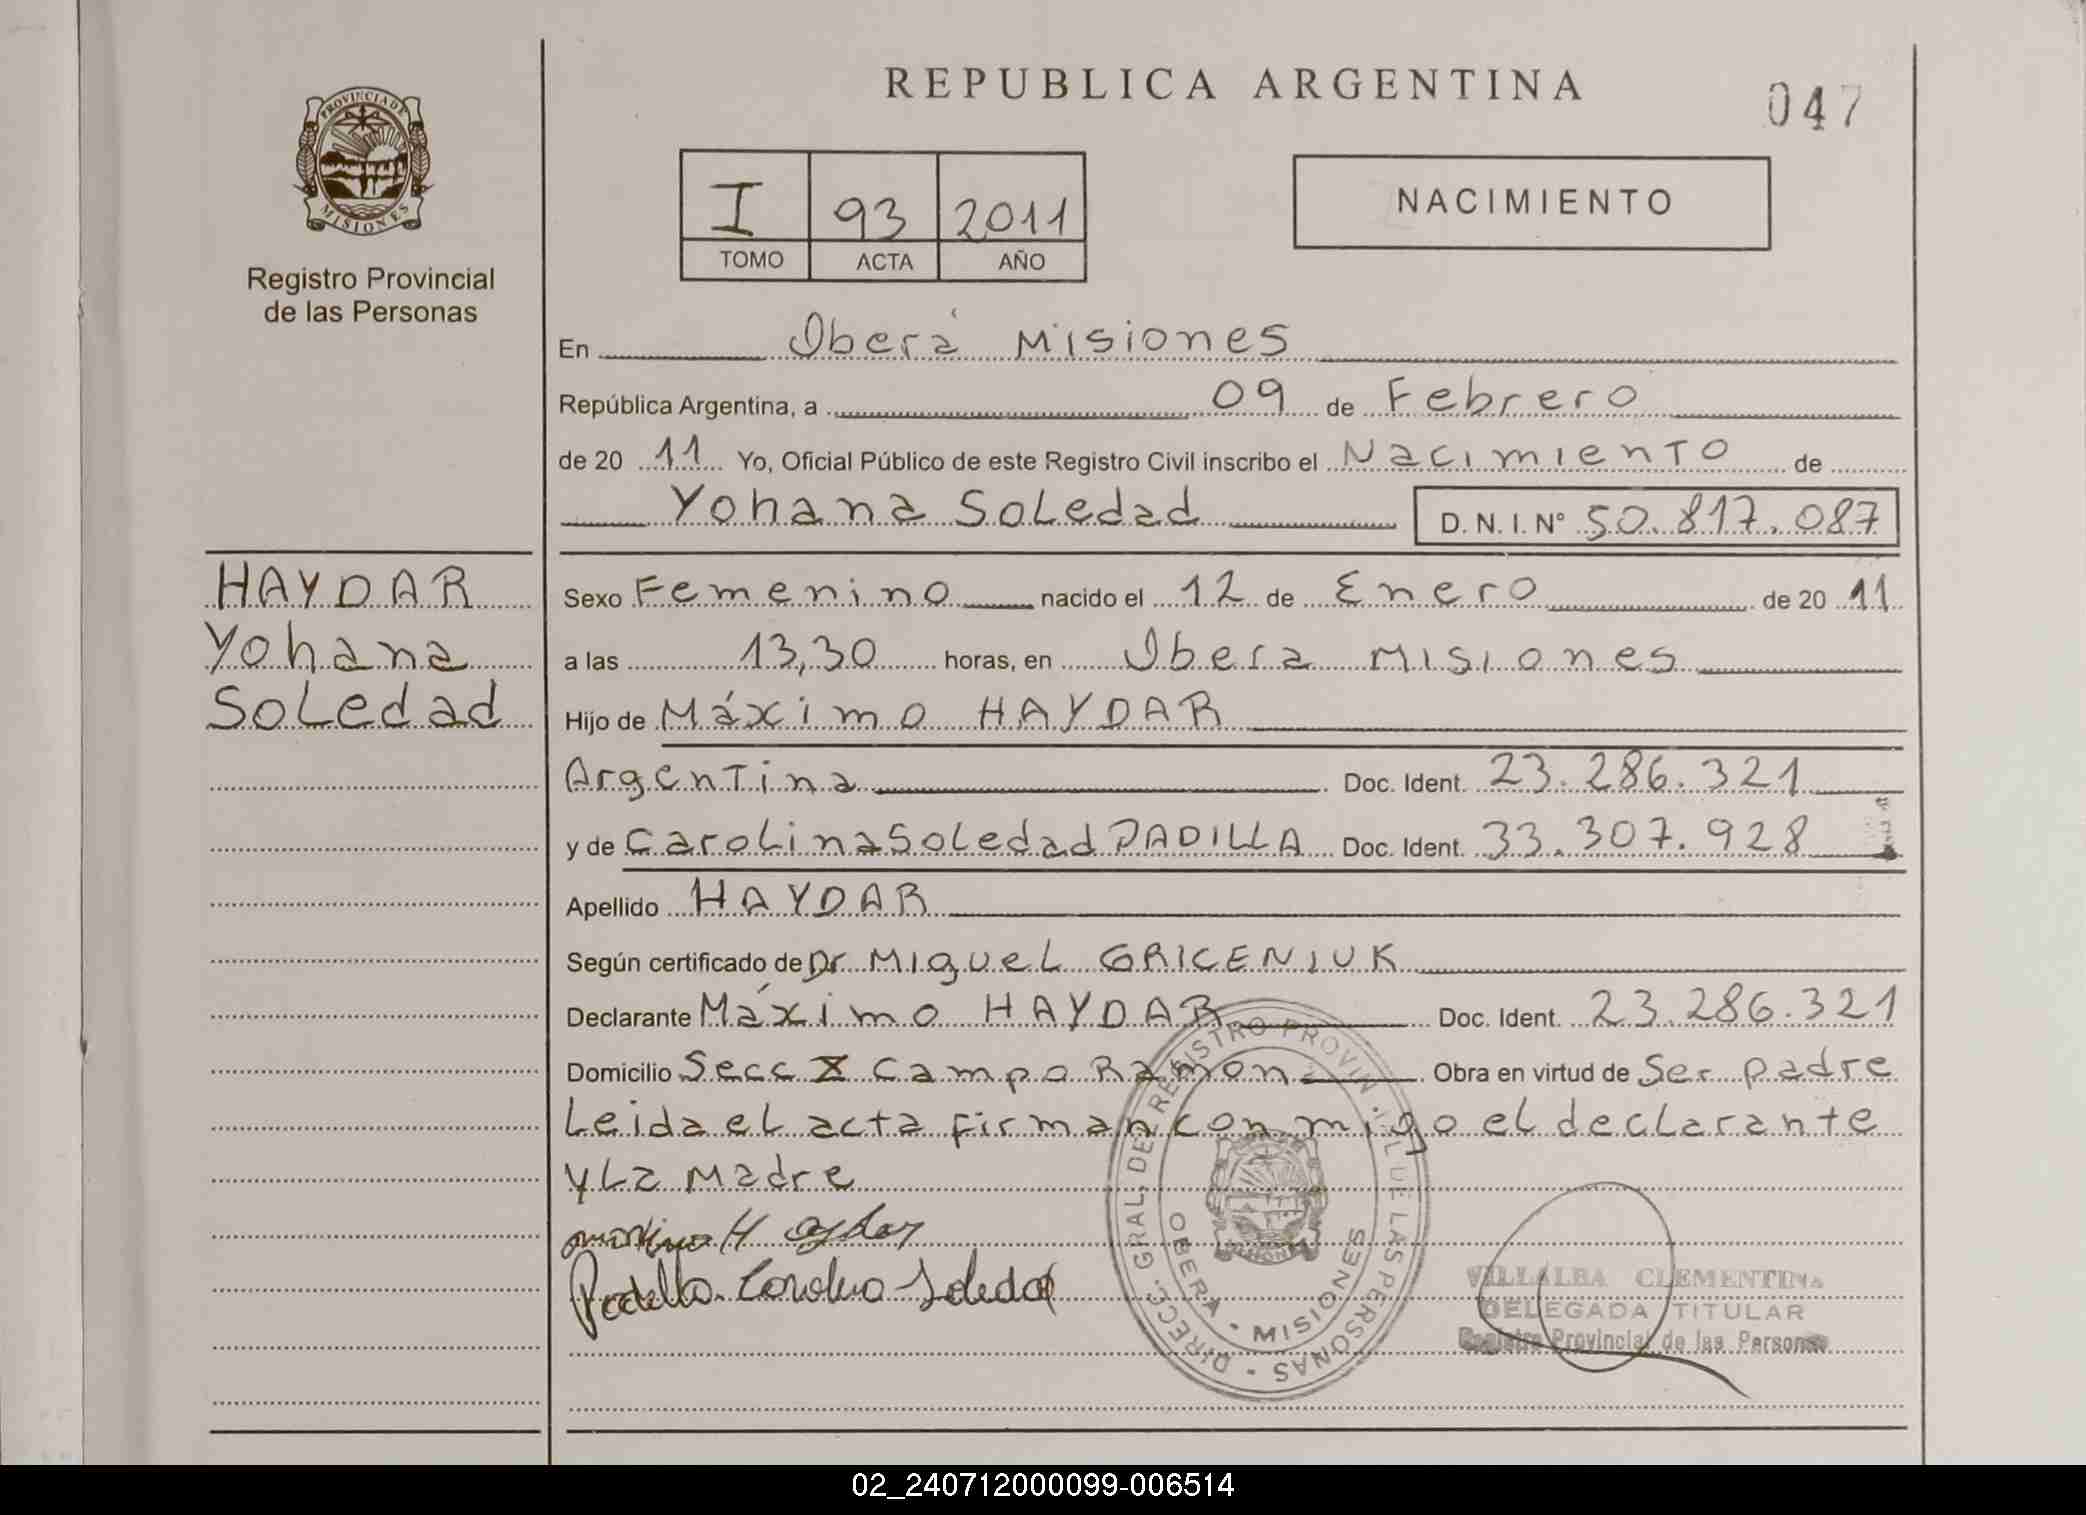 REPUBLICA ARGENTINA
047
PROVINCIA DE
MISIONES
Registro Provincial
de las Personas
I 93 2011
TOMO ACTA AÑO
NACIMIENTO
En Oberá Misiones
República Argentina, a 09 de Febrero
de 20 11 Yo, Oficial Público de este Registro Civil inscribo el Nacimiento de
Yohana Soledad D. N. I. N° 50.817.087
HAYDAR
Yohana
Soledad
Sexo Femenino nacido el 12 de Enero de 20 11
a las 13,30 horas, en Obera Misiones
Hijo de Máximo HAYDAR
Argentina Doc. Ident. 23.286.321
y de Carolina Soledad PADILLA Doc. Ident. 33.307.928
Apellido HAYDAR
Según certificado de Dr Miguel GRICENIUK
Declarante Máximo HAYDAR Doc. Ident. 23.286.321
Domicilio Secc X Campo Ramon Obra en virtud de Ser padre
Leida el acta firman conmigo el declarante
y La Madre
maximo Haydar
Padilla Carolina Soledad
DIRECC. GRAL. DE REGISTRO PROVINCIAL DE LAS PERSONAS
OBERA - MISIONES
VILLALBA CLEMENTINA
DELEGADA TITULAR
Registro Provincial de las Personas
02_240712000099-006514